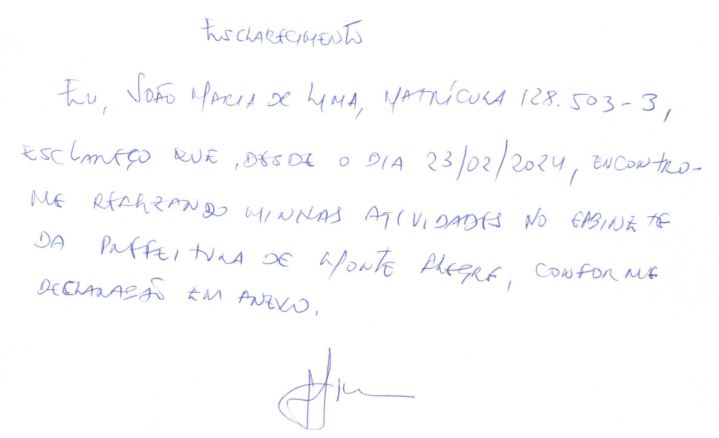 ESCLARECIMENTO
EU, JOÃO MARIA DE LIMA, MATRÍCULA 128.503-3,
ESCLAREÇO QUE, DESDE O DIA 23/02/2024, ENCONTRO-
ME REALIZANDO MINHAS ATIVIDADES NO GABINETE
DA PREFEITURA DE MONTE ALEGRE, CONFORME
DECLARAÇÃO EM ANEXO.